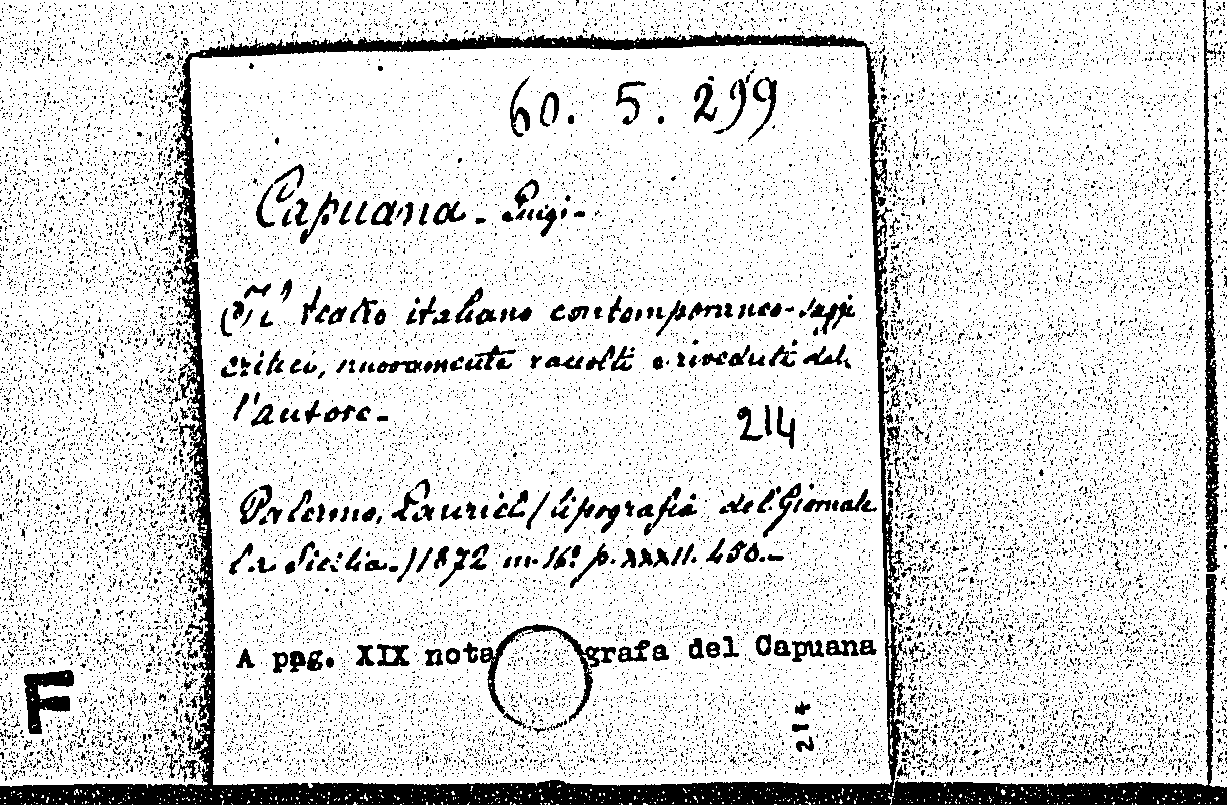 60. 5. 299
Capuana - Luigi -
Il teatro italiano contemporaneo - saggi
critici, nuovamente raccolti e riveduti del-
l'autore -
214
Palermo, Lauriel (tipografia del Giornale
la Sicilia.) 1872 in-16º p. XXXII. 450. -
A pag. XIX nota grafa del Capuana
214
F